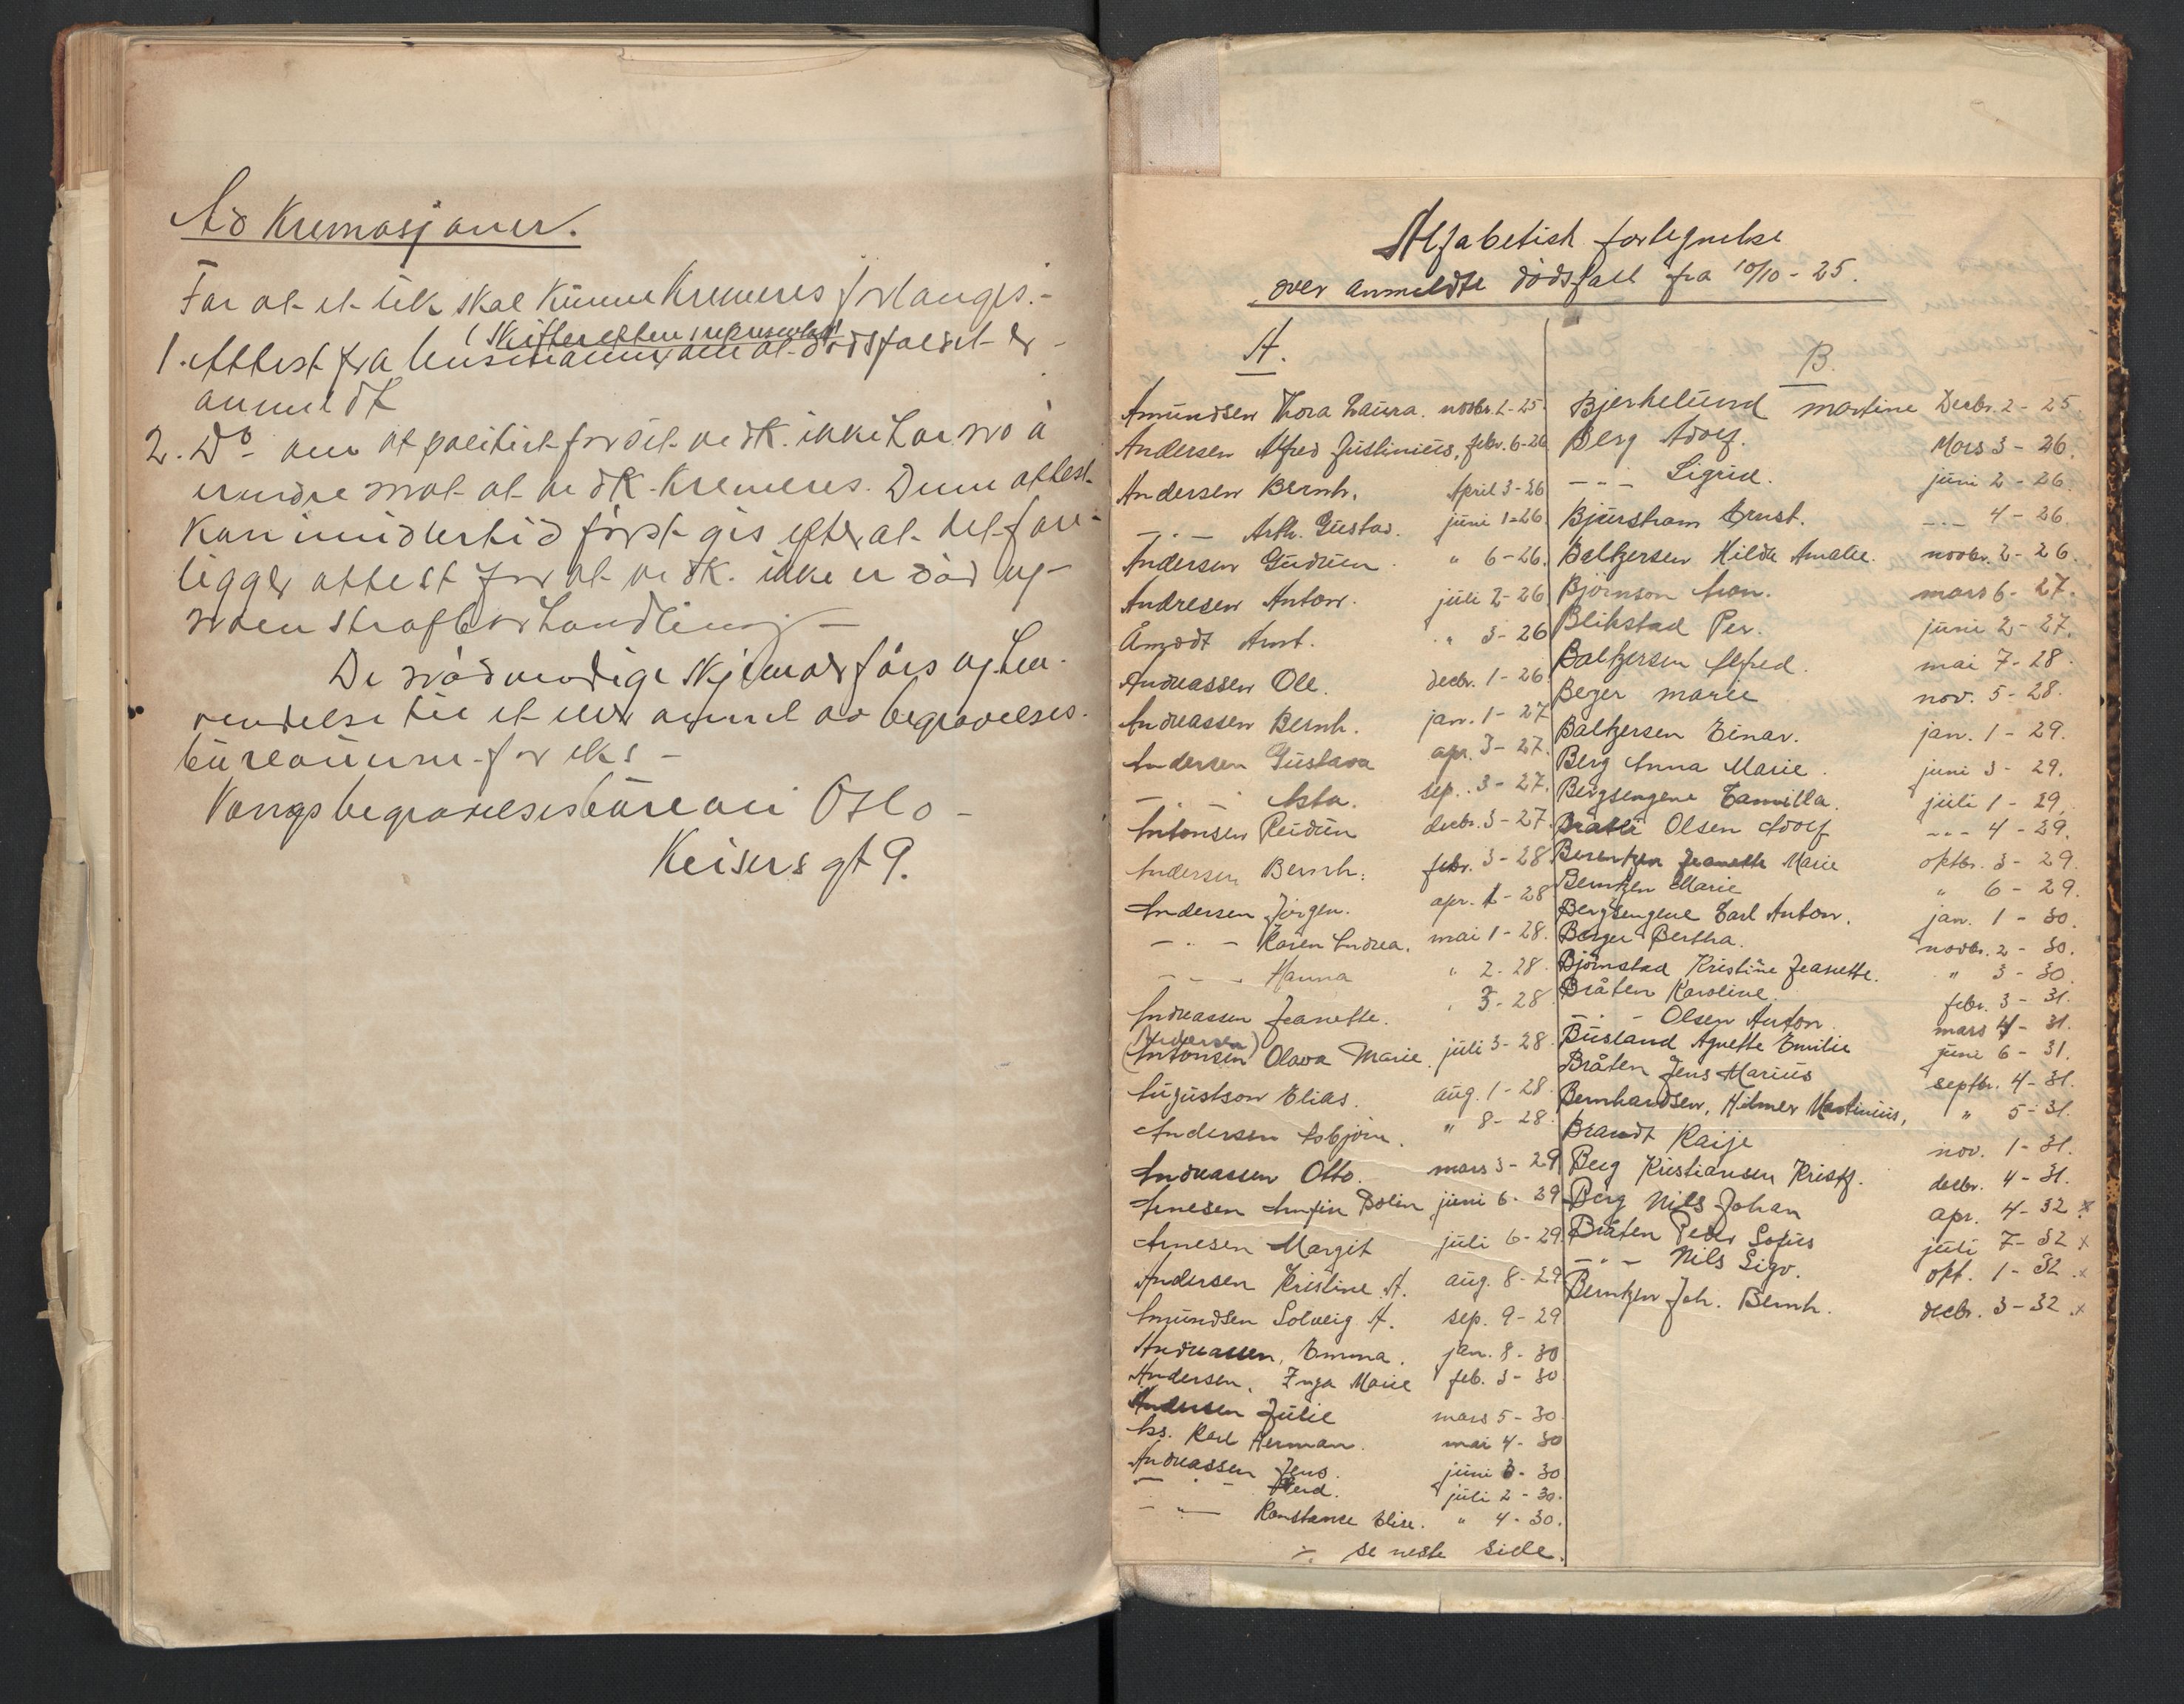 Ad Kremasjoner.
For at et lik skal kunne Kremeres forlanges.-
(Skifterettens representant
1. Attest fra lensmannen om at dødsfallet er -
anmeldt
2. Do om at politiet for sit vedk. ikke har no å
erindre mot at vedk. Kremeres. Denne attest
kan imidlertid først gis efter at det fore-
ligger attest for at vedk. ikke er død ved
noen straffbar handling -
De nødvendige skjemaer fåes ved hen-
vendelse til et eller annet av begravelses-
büreauene for eks -
Vangs begravelsesbüreau Oslo -
Keisers gt 9.
Alfabetisk fortegnelse
over anmeldte dødsfall fra 10/10 - 25.
A.
Amundsen Thora Laura. novbr. 2 - 25.
Andersen Alfred Justinius, febr. 6-26
Andersen Bernh. April 3-26
- " - Arth. Gustav. juni 1-26
Andersen Gudrun. " 6-26.
Andresen Anton. juli 2-26
Åmodt Anst. " 3-26
Andreassen Ole. decbr. 1-26.
Andreassen Bernh. jan. 1-27
Andersen Gustava apr. 3-27.
- " - Asta. sep. 3-27.
Antonsen Reidun decbr. 3-27.
Andersen Bernh. febr. 3-28
Andersen Jørgen. apr. 1-28
- " - Karen Andrea. mai 1-28.
- " - Hanna " 2-28.
Andreassen Jeanette. " 3-28
(Andersen)
(Antonsen Olava Marie. juli 3-28.
Augustson Elias. aug. 1-28.
Andersen Asbjørn. " 8-28.
Andreassen Otto. mars 3-29
Arnesen Arnfin Dolin juni 6-29
Arnesen Margit juli 6-29.
Andersen Kristine A. aug. 8-29
Amundsen Solveig A. sep. 9-29
Andreassen, Emma. jan. 8-30
Andersen, Inga Marie feb. 3-30
Andersen Julie mars 5-30.
Aas. Karl Herman. mai 4-30
Andreassen Jens. juni 3-30
- " - Ferd. juli 2-30.
- " - Konstanse Elise. " 4-30.
./. se neste side.
B.
Bjerkelund Martine Decbr. 2-25.
Berg Adolf. Mars 3-26.
- " - Sigrid. juni 2-26.
Bjurstrøm Ernst. - " - 4-26
Baltzersen Hilda Amalie. novbr. 2-26.
Bjørnson Aron. mars 6-27.
Blikstad Per. juni 2-27.
Baltzersen Alfred. mai 7-28.
Beger Marie nov. 5-28.
Baltzersen Einar. jan. 1-29.
Berg Anna Marie. juni 3-29.
Bergsengene Camilla. juli 1-29.
Bråtti Olsen Adolf - " - 4-29.
Berentzen Jeanette Marie oktbr. 3-29.
Berntzen Marie " 6-29.
Bergsengene Carl Anton. jan. 1-30.
Berger Bertha. novbr. 2-30.
Bjørnstad Kristine Jeanette. " 3-30.
Bråten Karoline. febr. 3-31.
- " - Olsen Anton. mars 4-31.
Busland Agnette Emilie june 6-31.
Bråten Jens Marius septbr. 4-31.
Bernhardsen, Hilmer Martinius, " 5-31.
Brandt Kaije nov. 1-31.
Berg Kristiansen Kristf. decbr. 4-31.
Berg Nils Johan apr. 4-32 x
Bråten Peder Sofus juli 7-32 x
- " - Nils Sigv. okt. 1-32 x
Berntzen Joh. Bernh. decbr. 3-32 x